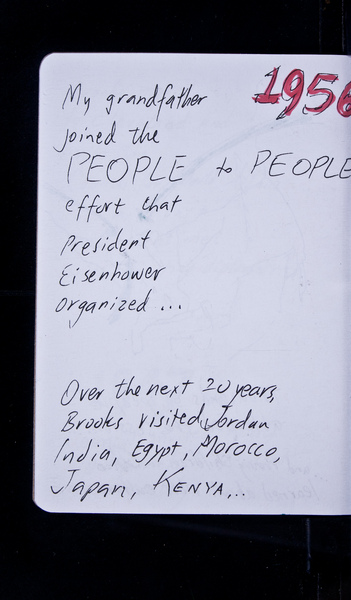 1956
My grandfather
joined the
PEOPLE to PEOPLE
effort that
President
Eisenhower
organized ...
Over the next 20 years,
Brooks visited Jordan
India, Egypt, Morocco,
Japan, KENYA...